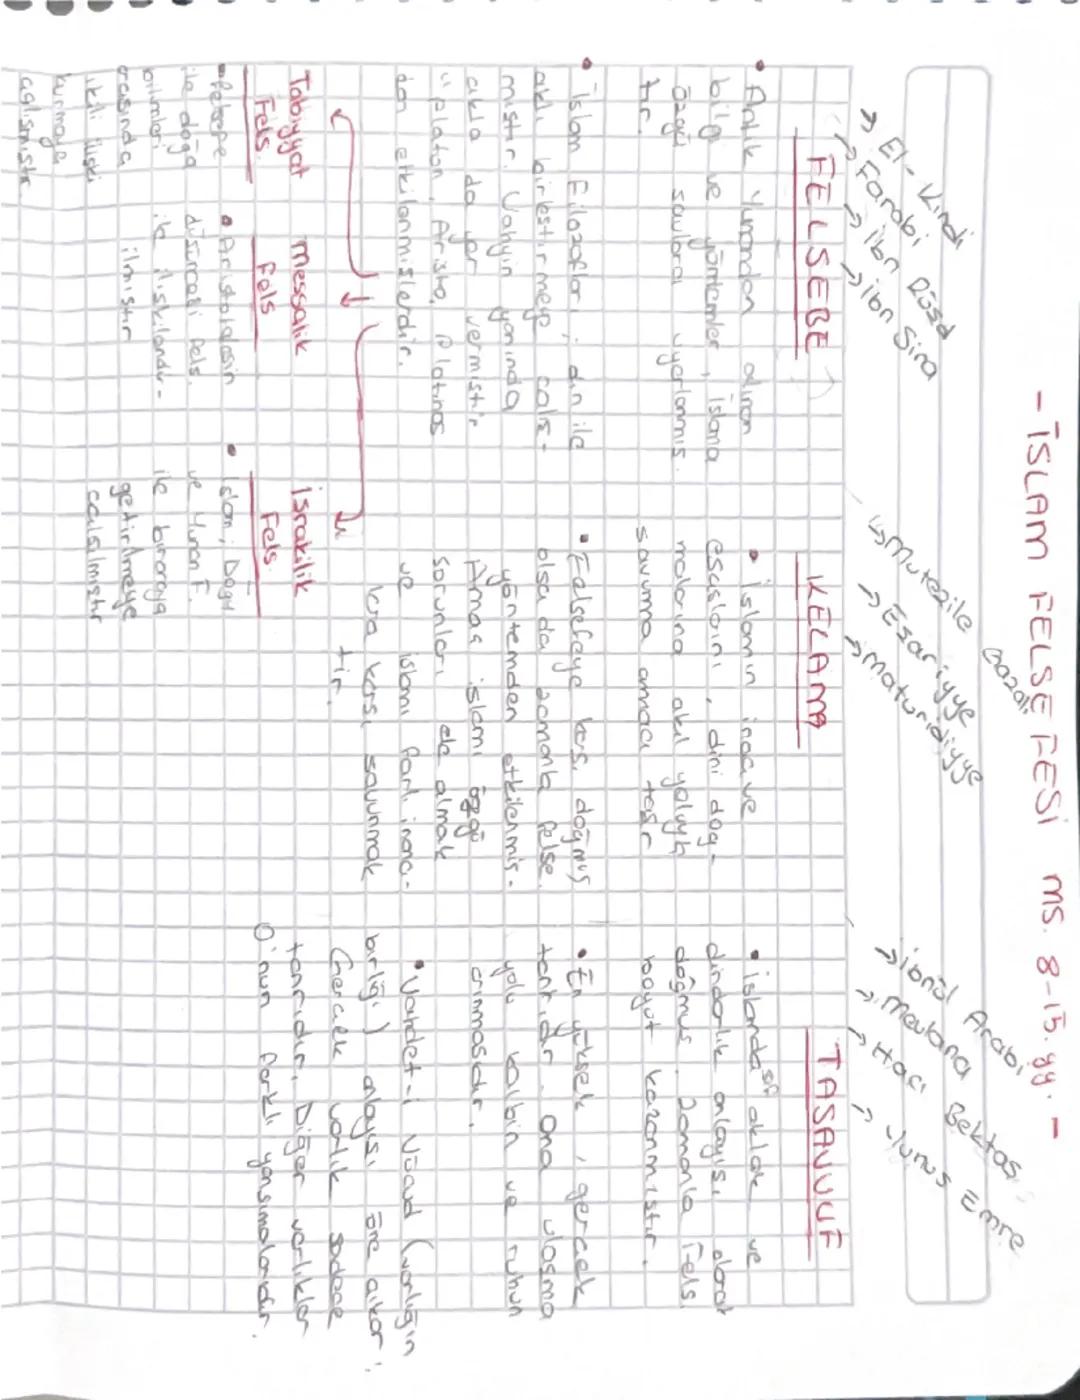 - İSLAM FELSEFESİ MS. 8-15. yy. -
→ El-Kindi
→ Farabi
→ İbn Rüşd
→ İbn Sina
FELSEBE
• Antik Yunandan alınan
bilgi ve yöntemler, İslama
özgü savlara uyarlanmış
tır.
• İslam Filozofları; din ile
aklı birleştirmeye çalış-
mıştır. Vahyin yanında
akla da yer vermiştir
" Platon, Aristo, Platinos
dan etkilenmişlerdir.
Tabiyyat
Fels.
• Felsefe
ile doğa
bilimleri
arasında
ikili ilişki
kurmaya
çalışmıştır
Messalik
Fels
• Aristotalesin
düşüncesi Fels.
ile ilişkilendir-
ilmiştir
İsrakilik
Fels.
• İslam, Doğu
ve Yunan F.
ile biraraya
getirilmeye
çalışılmıştır
→ Mutezile
Gazali
→ Eşariyye
→ Maturidiyye
KELAMA
• İslamın inanç ve
esaslarını, dini dog-
malarına akıl yoluyla
savunma amacı taşır
• Felsefeye karşı doğmuş
olsa da zamanla felse.
yöntemden etkilenmiş.
Amaç islami özgü
sorunları ele almak
ve islamı farklı inanç-
lara karşı savunmak
tır.
→ İbnül Arabi
→ Mevlana
→ Hacı Bektaş
→ Yunus Emre
TASAVVUF
• İslamda sf ahlak ve
dindarlık anlayışı olarak
doğmuş, zamanla Fels.
boyut kazanmıştır.
• En yüksek, gerçek
tanrıdır. Ona ulaşma
yolu kalbin ve ruhun
arınmasıdır.
• Vahdet-i Vücud (varlığın
birliği) anlayışı öne çıkar.
Gerçek varlık sadece
tanrıdır. Diğer varlıklar
O'nun farklı yansımalarıdır.